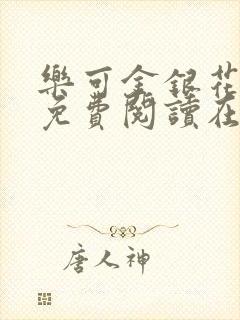 樂可金銀花
免費閱讀在
唐人神